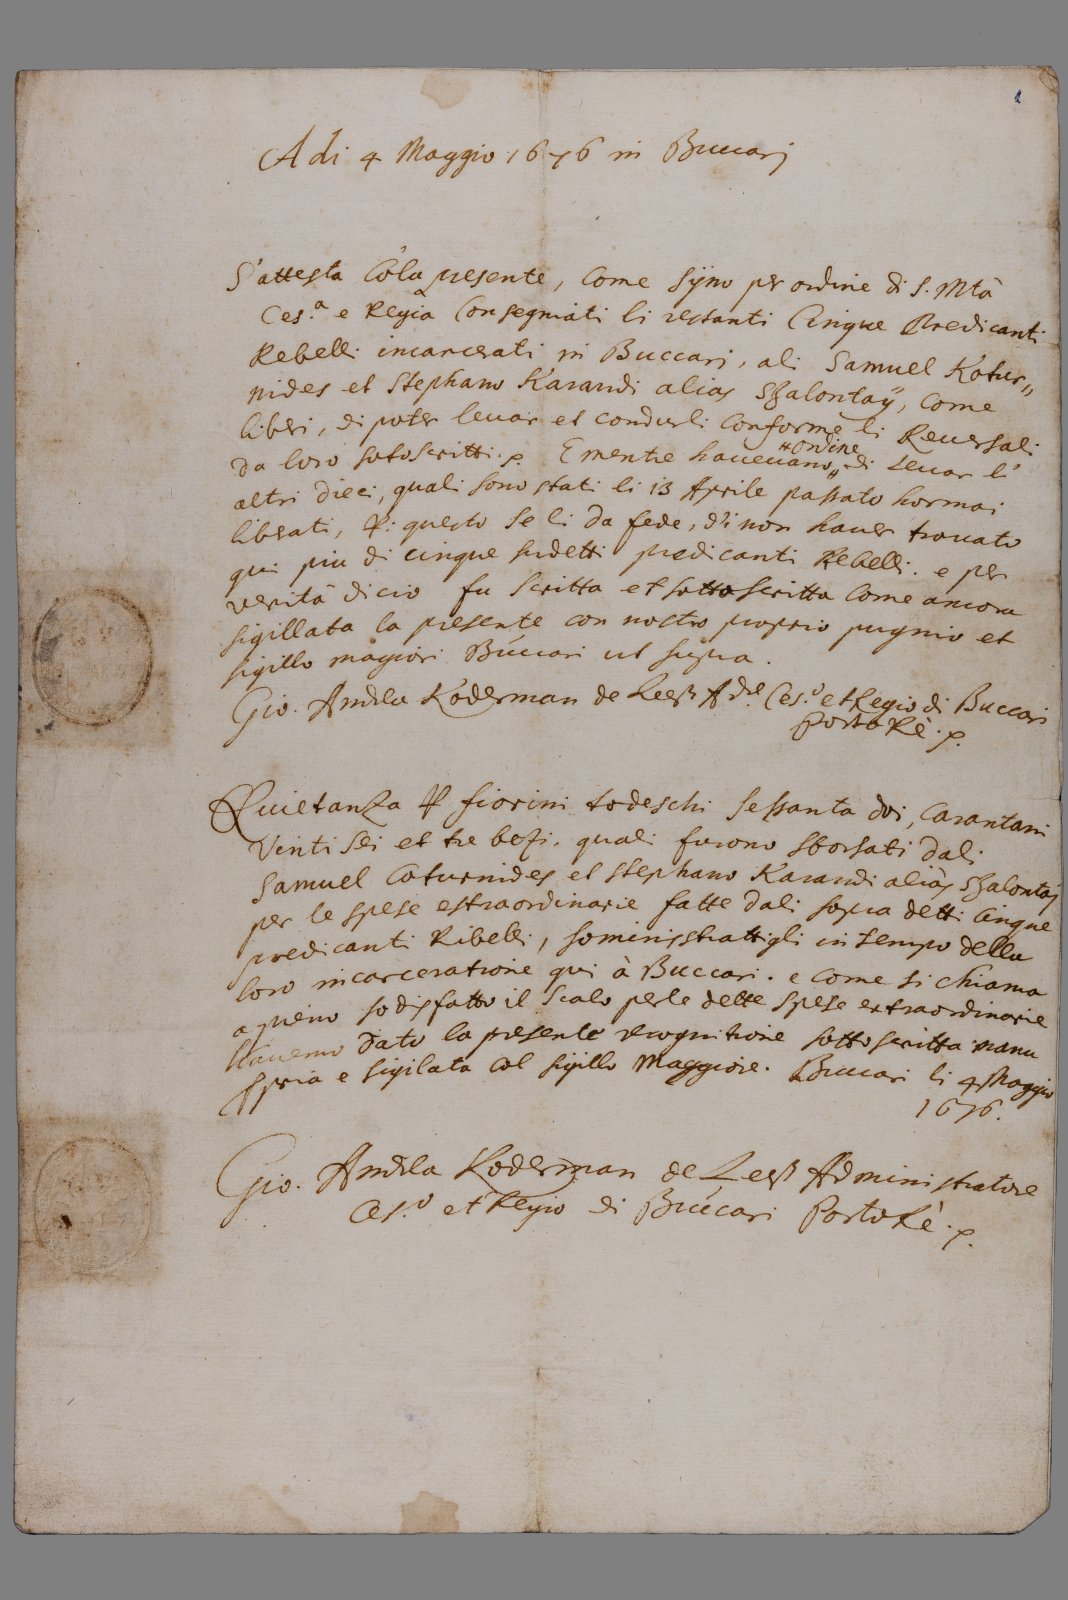 1
Adi 4 Maggio 1676 in Buccari
S'attesta Cola presente, Come sÿno per ordine di S. Mtà
Ces.ª e Regia Consegniati li restanti Cinque Predicanti
Rebelli incarcerati in Buccari, ali Samuel Kotur„
nides et Stephano Karandi alias Szalontaÿ, Come
liberi, di poter levar et condurli Conforme li Reversali
da loro sotoscritti. E mentre havevano„ „ordine di Levar li
altri dieci, quali sono stati li 13 Aprile passato hormai
liberati, questo se li da fede, di non haver trovato
qui piu di cinque sudetti predicanti Rebelli. e per
verità di cio fu scritta et sotto scritta Come ancora
sigillata la presente con nostro proprio pugnio et
sigillo magiori Buccari ut supra.
Gio. Andrea Koderman de Ces.º et Regio di Buccari
Porto Rè.
Quietanza fiorini todeschi sessanta doi, Carantani
Venti sei et tre bezi. quali furono sborsati dali
Samuel Coturnides et Stephano Karandi aliàs Szalontaÿ
per le spese estraordinarie fatte dali sopra detti Cinque
predicanti Ribelli, sominisstrattigli in tempo della
loro incarceratione qui à Buccari. e Come si chiama
a pieno sodisfatto il Scalo per le dette spese extraordinarie
Havemo Dato la presente recognitione sottoscritta manu
ppria e sigilata Col sigillo Maggiore. Buccari li 4 Maggio
1676.
Gio. Andrea Koderman de Administratore
Ces.º et Regio di Buccari Porto Rè.